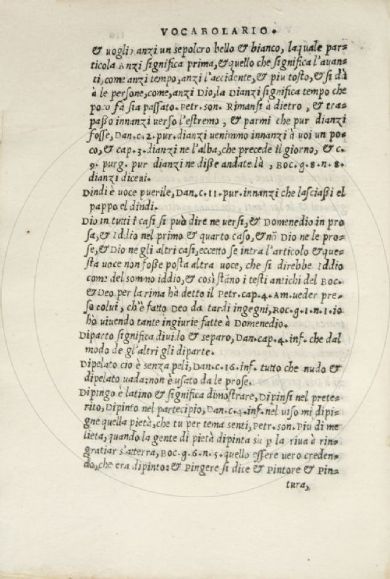 VOCABOLARIO.
& uogli anzi un sepolcro bello & bianco, laquale par=
ticola Anzi significa prima, & quello che significa l'auan=
ti, come anzi tempo, anzi l'accidente, & piu tosto, & si dà
à le persone, come, anzi Dio, la Dianzi significa tempo che
poco fà sia passato. Petr. son. Rimansi à dietro, & tra=
passo innanzi uerso l'estremo, & parmi che pur dianzi
fosse, Dan. c. 2. pur. dianzi uenimmo innanzi à uoi un po=
co, & cap. 9. dianzi ne l'alba, che precede il giorno, & c.
9. purg. pur dianzi ne disse andate là, Boc. g. 8. n. 8.
dianzi diceui.
Dindi è uoce puerile, Dan. c. 11. pur. innanzi che lasciassi el
pappo el dindi.
Dio in tutti i casi si può dire ne uersi, & Domenedio in pro
sa, & Iddio nel primo & quarto caso, & nō Dio ne le pro=
se, & Dio ne gli altri casi, eccetto se intra l'articolo & que=
sta uoce non fosse posta altra uoce, che si direbbe Iddio
come del sommo iddio, & cosi stano i testi antichi del Boc.
& Deo per la rima hà detto il Petr. cap. 4. Am. ueder pre=
so colui, ch'è fatto Deo da tardi ingegni, Boc. g. 1. n. 1. io
ho uiuendo tante ingiurie fatte à Domenedio.
Diparto significa diuido & separo, Dan. cap. 4. inf. che dal
modo de gl'altri gli diparte.
Dipelato cio è senza peli, Dan. c. 16. inf. tutto che nudo &
dipelato uada: non è usato da le prose.
Dipingo è latino & significa dimostrare, Dipinsi nel prete=
rito, Dipinto nel partecipio, Dan. c. 4. inf. nel uiso mi dipi=
gne quella pietà, che tu per tema senti, Petr. son. Piu di me
lieta, quando la gente di pietà dipinta su p la riua è rin=
gratiar s'atterra, Boc. g. 6. n. 5. quello essere uero creden=
do, che era dipinto: & Pingere si dice & Pintore & Pin=
tura,